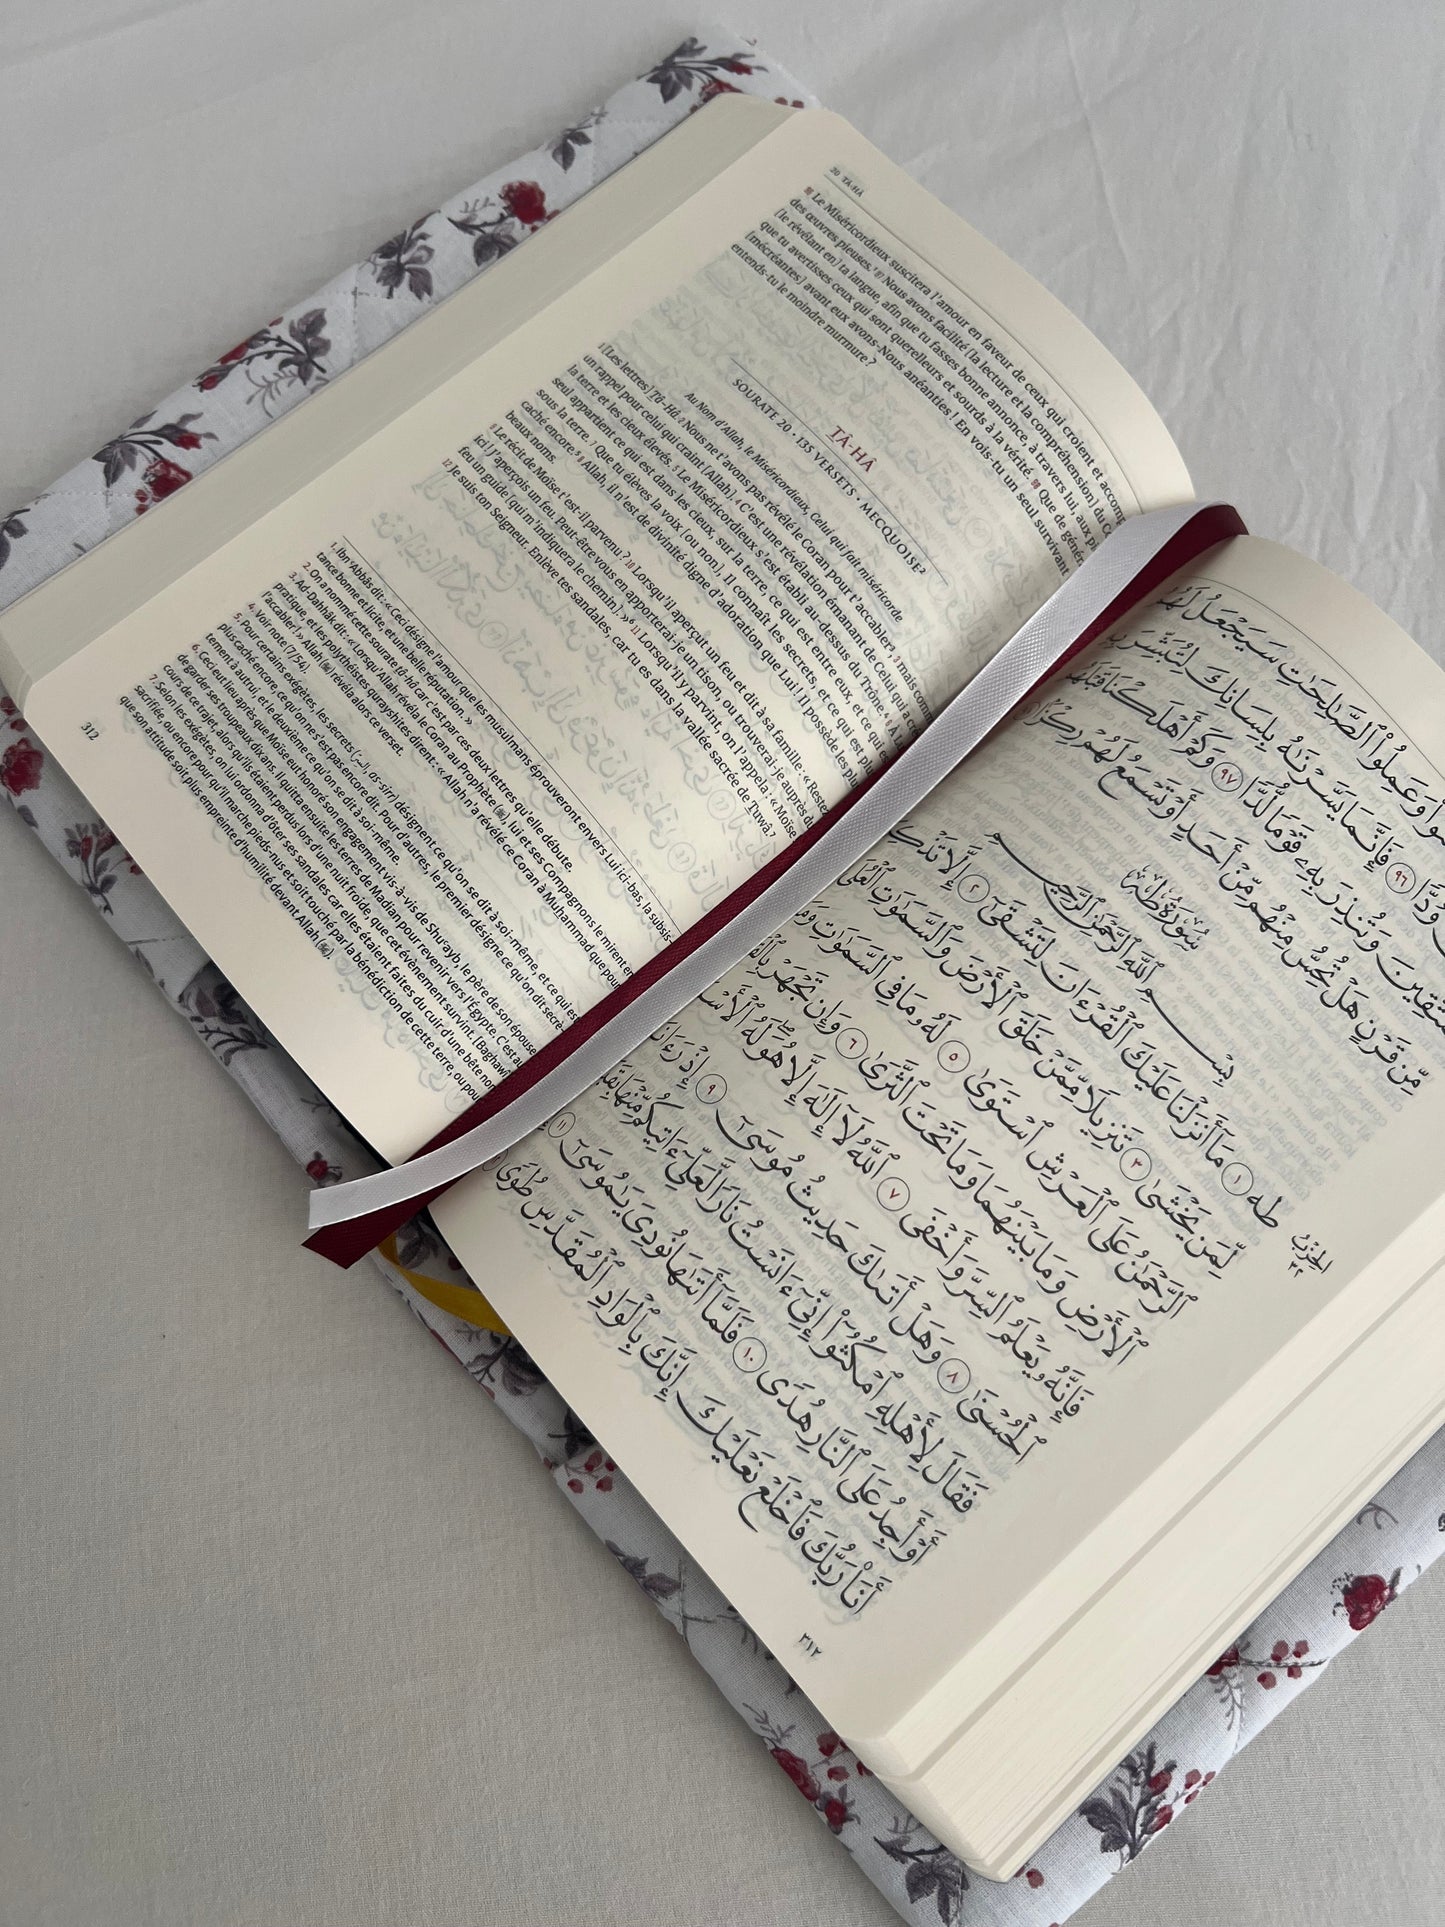 20 TÂ-HÂ
96 Le Miséricordieux suscitera l'amour en faveur de ceux qui croient et accomp
des œuvres pieuses.¹ 97 Nous avons facilité [la lecture et la compréhension] du Co
[le révélant en] ta langue, afin que tu fasses bonne annonce, à travers lui, aux pi
que tu avertisses ceux qui sont querelleurs et sourds à la vérité. 98 Que de généra
[mécréantes] avant eux avons-Nous anéanties ! En vois-tu un seul survivant
entends-tu le moindre murmure ?
SOURATE 20 • 135 VERSETS • MECQUOISE²
TÂ-HÂ
Au Nom d'Allah, le Miséricordieux, Celui qui fait miséricorde
1 [Les lettres] Tâ-Hâ. 2 Nous ne t'avons pas révélé le Coran pour t'accabler³, 3 mais comm
un rappel pour celui qui craint [Allah]. 4 C'est une révélation émanant de Celui qui a c
la terre et les cieux élevés. 5 Le Miséricordieux s'est établi au-dessus du Trône.⁴ 6 À L
seul appartient ce qui est dans les cieux, sur la terre, ce qui est entre eux, et ce qui es
sous la terre. 7 Que tu élèves la voix [ou non], Il connaît les secrets, et ce qui est plu
caché encore.⁵ 8 Allah, il n'est de divinité digne d'adoration que Lui ! Il possède les plu
beaux noms.
9 Le récit de Moïse t'est-il parvenu ? 10 Lorsqu'il aperçut un feu et dit à sa famille : « Reste
ici ! J'aperçois un feu. Peut-être vous en apporterai-je un tison, ou trouverai-je auprès du
feu un guide [qui m'indiquera le chemin]. »⁶ 11 Lorsqu'il y parvint, on l'appela : « Moïse
12 Je suis ton Seigneur. Enlève tes sandales, car tu es dans la vallée sacrée de Tuwâ.⁷
1. Ibn 'Abbâs dit : « Ceci désigne l'amour que les musulmans éprouveront envers Lui ici-bas, la subsis-
tance bonne et licite, et une belle réputation. »
2. On a nommé cette sourate tâ-hâ car c'est par ces deux lettres qu'elle débute.
3. Ad-Dahhâk dit : « Lorsqu'Allah révéla le Coran au Prophète (ﷺ), lui et ses Compagnons le mirent en
pratique, et les polythéistes qurayshites dirent : « Allah n'a révélé ce Coran à Muhammad que pour
l'accabler ! » Allah (ﷻ) révéla alors ce verset.
4. Voir note (7/54).
5. Pour certains exégètes, les secrets (السر, as-sirr) désignent ce qu'on se dit à soi-même, et ce qui es
plus caché encore, ce qu'on ne s'est pas encore dit. Pour d'autres, le premier désigne ce qu'on dit secrè-
tement à autrui, et le deuxième ce qu'on se dit à soi-même.
6. Ceci eut lieu après que Moïse eut honoré son engagement vis-à-vis de Shu'ayb, le père de son épouse
de garder ses troupeaux dix ans. Il quitta ensuite les terres de Madian, pour revenir vers l'Égypte. C'est au
cours de ce trajet, alors qu'ils étaient perdus lors d'une nuit froide, que cet évènement survint. [Baghawî
7. Selon les exégètes, on lui ordonna d'ôter ses sandales car elles étaient faites du cuir d'une bête non
sacrifiée, ou encore pour qu'il marche pieds-nus et soit touché par la bénédiction de cette terre, ou pou
que son attitude soit plus empreinte d'humilité devant Allah (ﷻ).
312
وَعَمِلُوا۟ ٱلصَّـٰلِحَـٰتِ سَيَجْعَلُ لَهُمُ
وُدًّا ٩٦ فَإِنَّمَا يَسَّرْنَـٰهُ بِلِسَانِكَ لِتُبَشِّرَ بِهِ
وَتُنذِرَ بِهِۦ قَوْمًا لُّدًّا ٩٧ وَكَمْ أَهْلَكْنَا قَبْلَهُم
مِّن قَرْنٍ هَلْ تُحِسُّ مِنْهُم مِّنْ أَحَدٍ أَوْ تَسْمَعُ لَهُمْ رِكْزًا
سُورَةُ طه
بِسْمِ ٱللَّهِ ٱلرَّحْمَـٰنِ ٱلرَّحِيمِ
طه ١ مَآ أَنزَلْنَا عَلَيْكَ ٱلْقُرْءَانَ لِتَشْقَىٰٓ ٢ إِلَّا تَذْكِ
لِّمَن يَخْشَىٰ ٣ تَنزِيلًا مِّمَّنْ خَلَقَ ٱلْأَرْضَ وَٱلسَّمَـٰوَٰتِ ٱلْعُلَى
ٱلرَّحْمَـٰنُ عَلَى ٱلْعَرْشِ ٱسْتَوَىٰ ٥ لَهُۥ مَا فِى ٱلسَّمَـٰوَٰتِ وَمَا
ٱلْأَرْضِ وَمَا بَيْنَهُمَا وَمَا تَحْتَ ٱلثَّرَىٰ ٦ وَإِن تَجْهَرْ بِٱلْقَ
فَإِنَّهُۥ يَعْلَمُ ٱلسِّرَّ وَأَخْفَى ٧ ٱللَّهُ لَآ إِلَـٰهَ إِلَّا هُوَ لَهُ ٱلْأَسْ
ٱلْحُسْنَىٰ ٨ وَهَلْ أَتَىٰكَ حَدِيثُ مُوسَىٰٓ ٩ إِذْ رَءَا نَا
فَقَالَ لِأَهْلِهِ ٱمْكُثُوٓا۟ إِنِّىٓ ءَانَسْتُ نَارًا لَّعَلِّىٓ ءَاتِيكُم مِّنْهَا بِقَبَ
أَوْ أَجِدُ عَلَى ٱلنَّارِ هُدًى ١٠ فَلَمَّآ أَتَىٰهَا نُودِىَ يَـٰمُوسَىٰٓ ١١
أَنَا۠ رَبُّكَ فَٱخْلَعْ نَعْلَيْكَ إِنَّكَ بِٱلْوَادِ ٱلْمُقَدَّسِ طُوًى
الحِزْبُ
٣٢
٣١٢